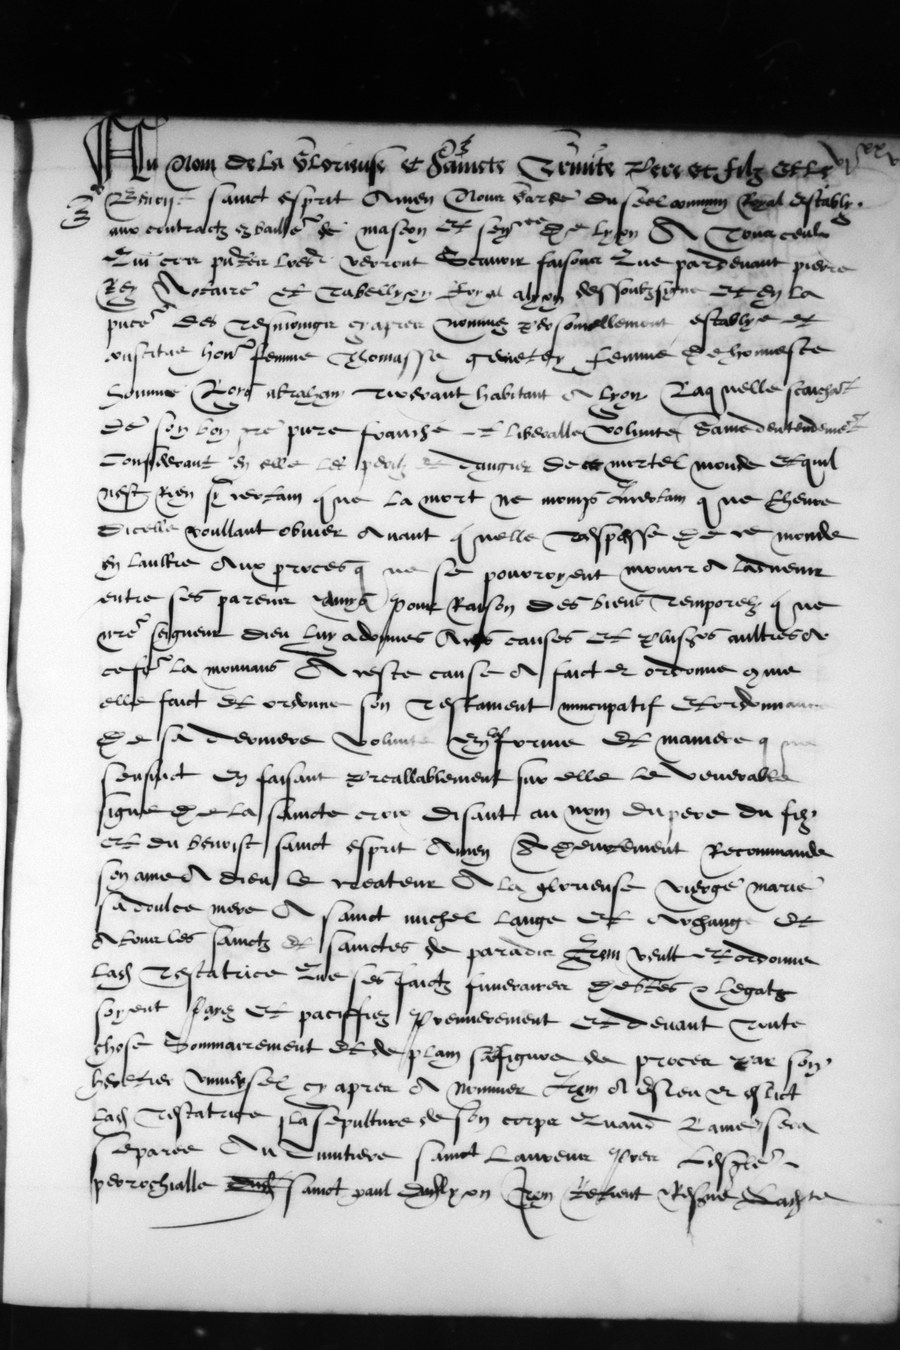 Au Nom de la Glorieuse et Saincte Trinite Pere et filz et le
benoist sainct esprit Amen Nous Garde du seel commun Royal estably
aux contractz es baille de mascon et sen de lyon A Tous ceulx
Qui ces pntes lres verront Scavoir faisons Que pardevant pierre
Notaire et Tabellyon Royal a lyon dessoubzsigne et en la
pnce des Tesmoings cy apres nommez personnellement establye et
constitue hon femme Thomasse femme de honneste
homme abraham habitant a lyon Laquelle scachat
de son bon gre pure franche et liberalle volunte saine dentendemet
Considerant en elle les perilz et dangers de ce mortel monde et quil
nest Rien sy certain que la mort ne moings incertain que lheure
dicelle voullant obvier avant quelle Trespasse de ce monde
en laultre Aux proces que se pourroyent mouvoir a ladvenir
entre ses parens amys pour Raison des biens Temporelz que
nre seigneur dieu luy a donnes A ces causes et plusrs aultres a
ce la mouvans A ceste cause a faict et ordonne comme
elle faict et ordonne son Testament nuncupatif et ordonnance
de sa derniere volunte En forme et maniere que
sensuict En faisant preallablement sur elle le venerable
signe de la saincte croix disant au nom du pere du filz
et du benoist sainct esprit Amen Et devotement Recommande
son ame A dieu le createur A la glorieuse vierge marie
sa doulce mere A sainct michel lange et archange et
A tous les sainctz et sainctes de paradis Item veult et ordonne
lad Testatrice Que ses faictz funeraires debtes & legatz
soyent payez et paciffiez premierement et devant Toute
chose Sommairement et de plain sans figure de proces par son
heretier universel cy apres A nommer Item a esleu et eslict
lad Testatrice la sepulture de son corps Quand Lame sera
separee Au Cimitiere sainct Laurens pres Lesglise
perrochialle sainct paul dud lyon Item